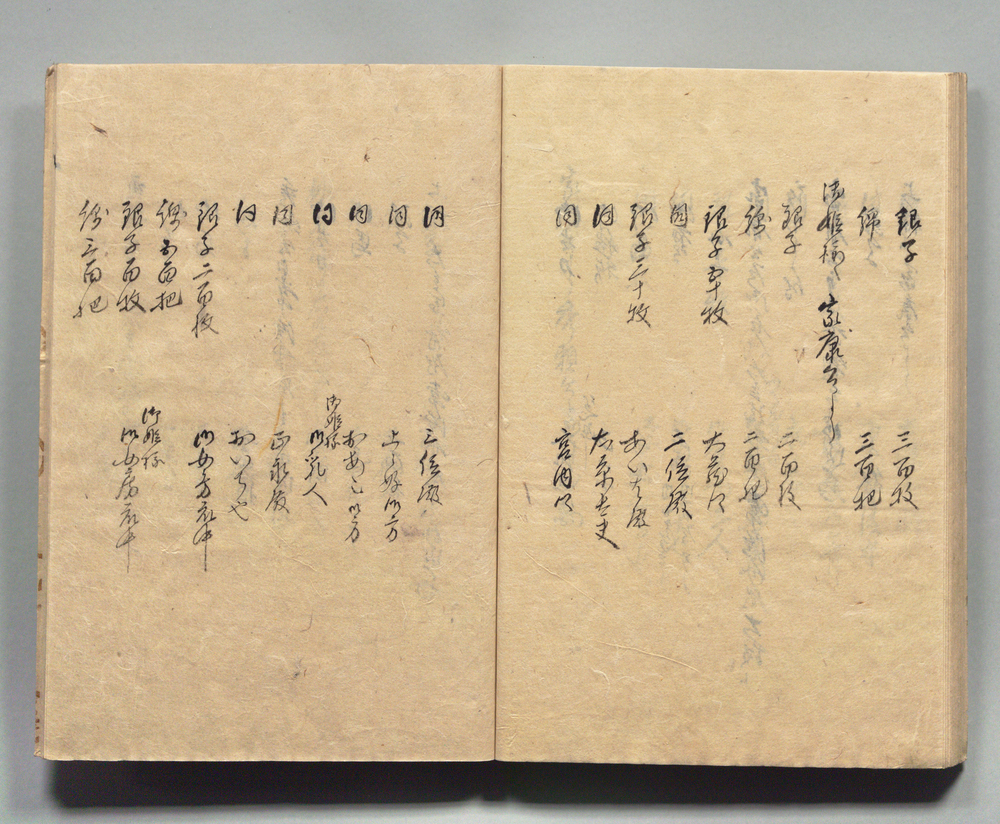 銀子 三百枚
綿 三百把
御姫様へ 家康公より
銀子 二百枚
綿 二百把
銀子五十枚 大蔵卿
同 二位殿
銀子三十枚 あいは殿
同 右京大夫
同 宮内卿
同 三位殿
同 上らふ御方
同 おあこ御方
同 御姫様御乳人
同 正永殿
同 おいちや
銀子二百枚 御女房衆中
綿五百把
銀子百枚 御姫様御女房衆中
綿三百把